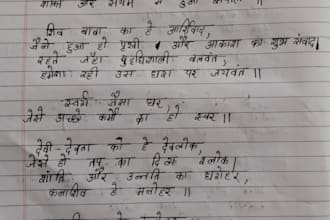 शिव बाबा का है आर्शिवाद,
जैसे हुआ हो पृथ्वी और आकाश का शुभ संवाद|
रहते जहाँ बुद्धिशाली बलवंत,
हमेशा रही उस धरा पर जयवंत ||
स्वर्ग जैसा घर,
जैसे अच्छे कर्मो का हो स्वर ||
देवी-देवता का है देवलोक,
जैसे हो तप का दिव्य श्लोक|
शांति और उन्नति का धरोहर,
है मनोहर ||